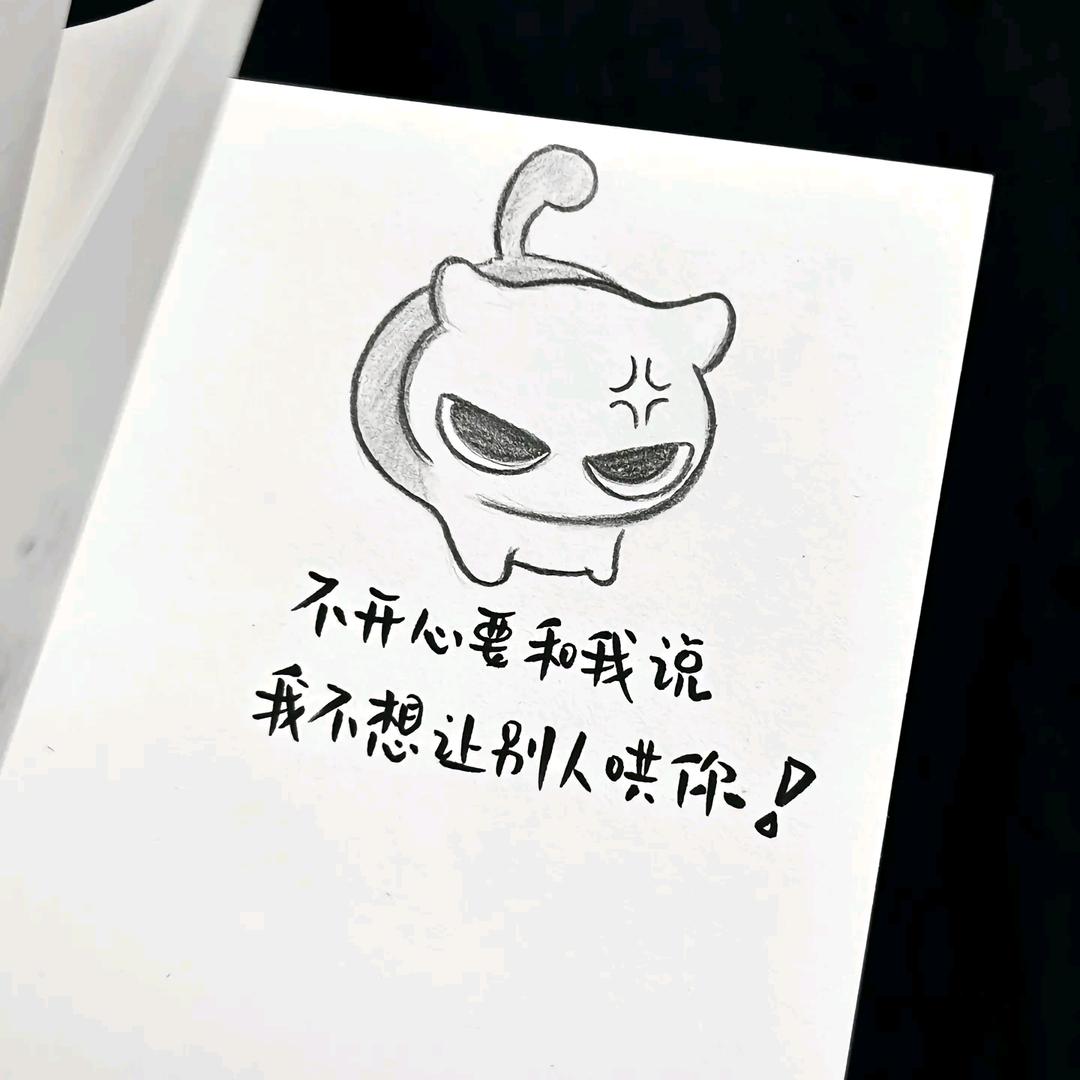 不开心要和我说
我不想让别人哄你!